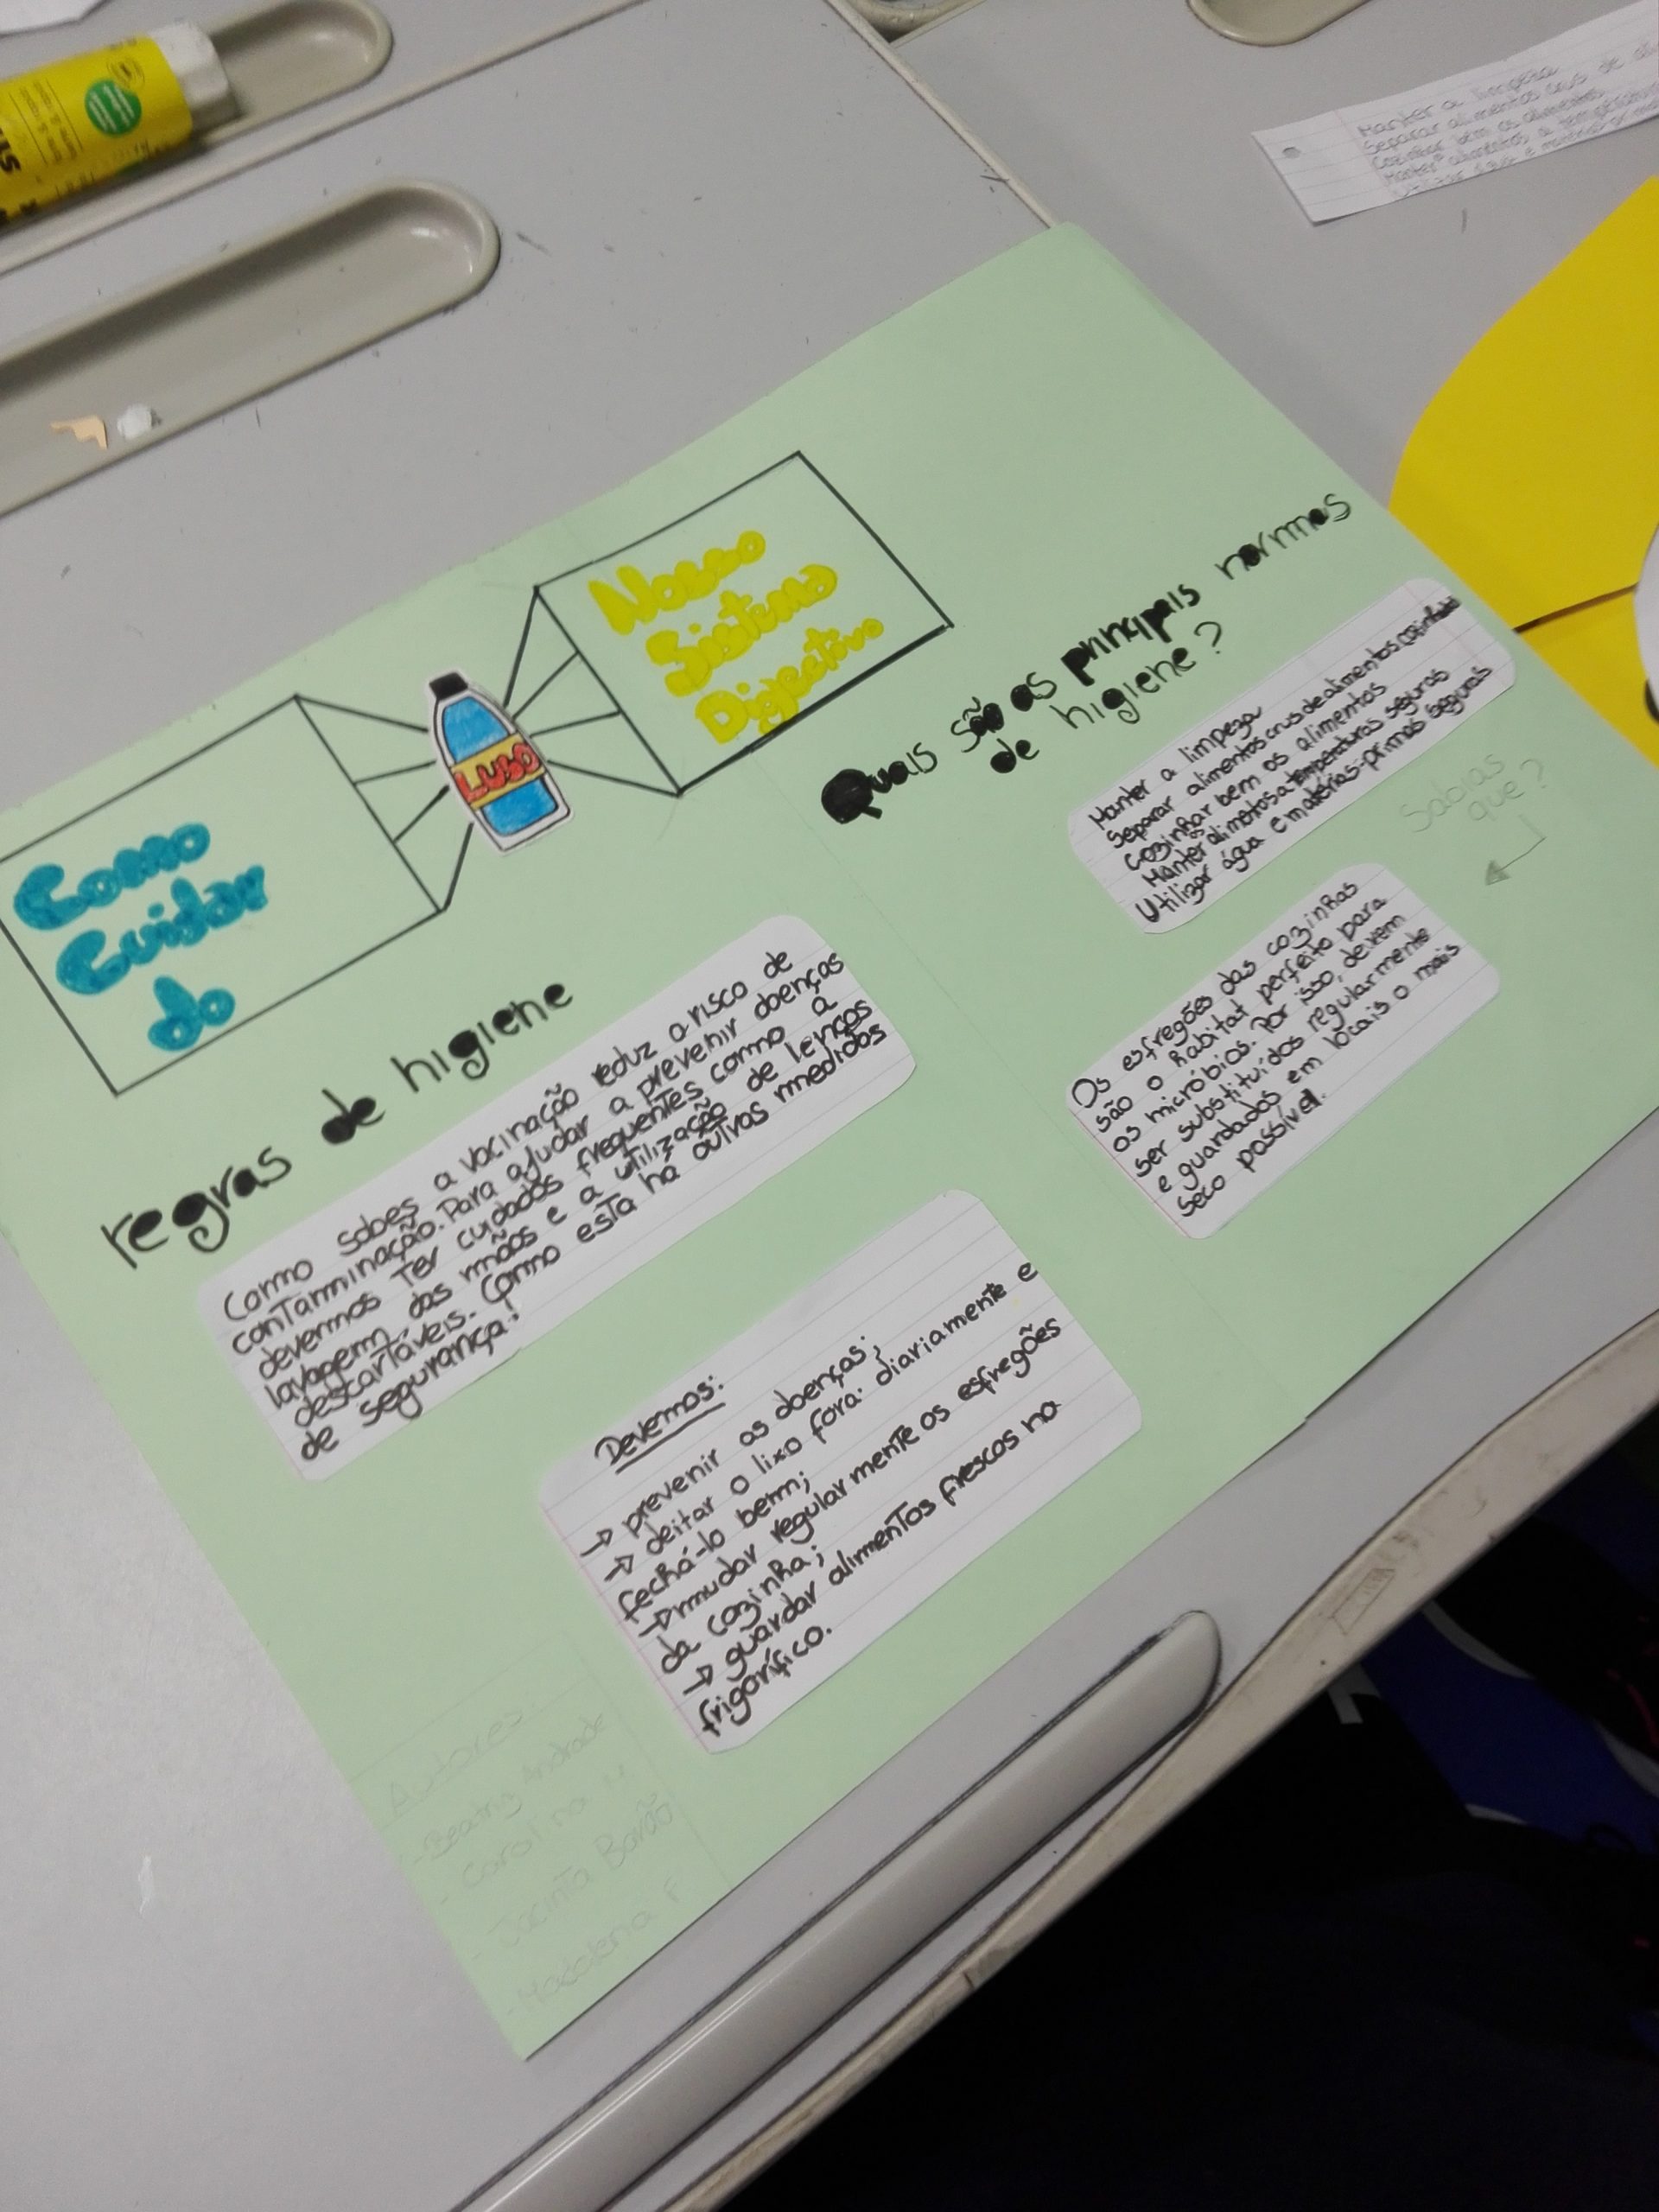 Como
Cuidar
do
LUSO
Nosso
Sistema
Digestivo
regras de higiene
Como sabes a vacinação reduz a risco de
contaminação. Para ajudar a prevenir doenças
devermos Ter cuidados frequentes como a
lavagem das mãos e a utilização de lenços
descartáveis. Como esta há outras medidas
de segurança!
Devemos:
→ prevenir as doenças;
→ deitar o lixo fora diariamente e
fechá-lo bem;
→ mudar regularmente os esfregões
da cozinha;
→ guardar alimentos frescos no
frigorífico.
Autores:
- Beatriz Andrade
- Carolina M
- Jacinta Barão
- Madalena F
Quais são as principais normas
de higiene?
Manter a limpeza
Separar alimentos crus de alimentos cozinhados
Cozinhar bem os alimentos
Manter os alimentos a temperaturas seguras
Utilizar água e matérias-primas seguras
Sabias
que?
Os esfregões das cozinhas
são o habitat perfeito para
os micróbios. Por isso, devem
ser substituídos regularmente
e guardados em locais o mais
seco possível.
Manter a limpeza
Separar alimentos crus de
Cozinhar bem os alimentos
Manter alimentos a